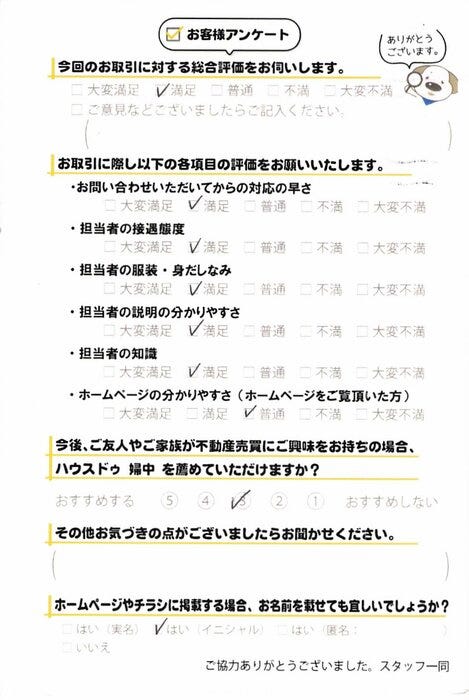 お客様アンケート
ありがとう
ございます。
今回のお取引に対する総合評価をお伺いします。
□大変満足 ☑満足 □普通 □不満 □大変不満
□ご意見などございましたらご記入ください。
お取引に際し以下の各項目の評価をお願いいたします。
・お問い合わせいただいてからの対応の早さ
□大変満足 ☑満足 □普通 □不満 □大変不満
・担当者の接遇態度
□大変満足 ☑満足 □普通 □不満 □大変不満
・担当者の服装・身だしなみ
□大変満足 ☑満足 □普通 □不満 □大変不満
・担当者の説明の分かりやすさ
□大変満足 ☑満足 □普通 □不満 □大変不満
・担当者の知識
□大変満足 ☑満足 □普通 □不満 □大変不満
・ホームページの分かりやすさ(ホームページをご覧頂いた方)
□大変満足 □満足 ☑普通 □不満 □大変不満
今後、ご友人やご家族が不動産売買にご興味をお持ちの場合、
ハウスドゥ 婦中 を薦めていただけますか?
おすすめする ⑤ ④ ③ ② ① おすすめしない
その他お気づきの点がございましたらお聞かせください。
ホームページやチラシに掲載する場合、お名前を載せても宜しいでしょうか?
□はい(実名) ☑はい(イニシャル) □はい(匿名: )
□いいえ
ご協力ありがとうございました。スタッフ一同